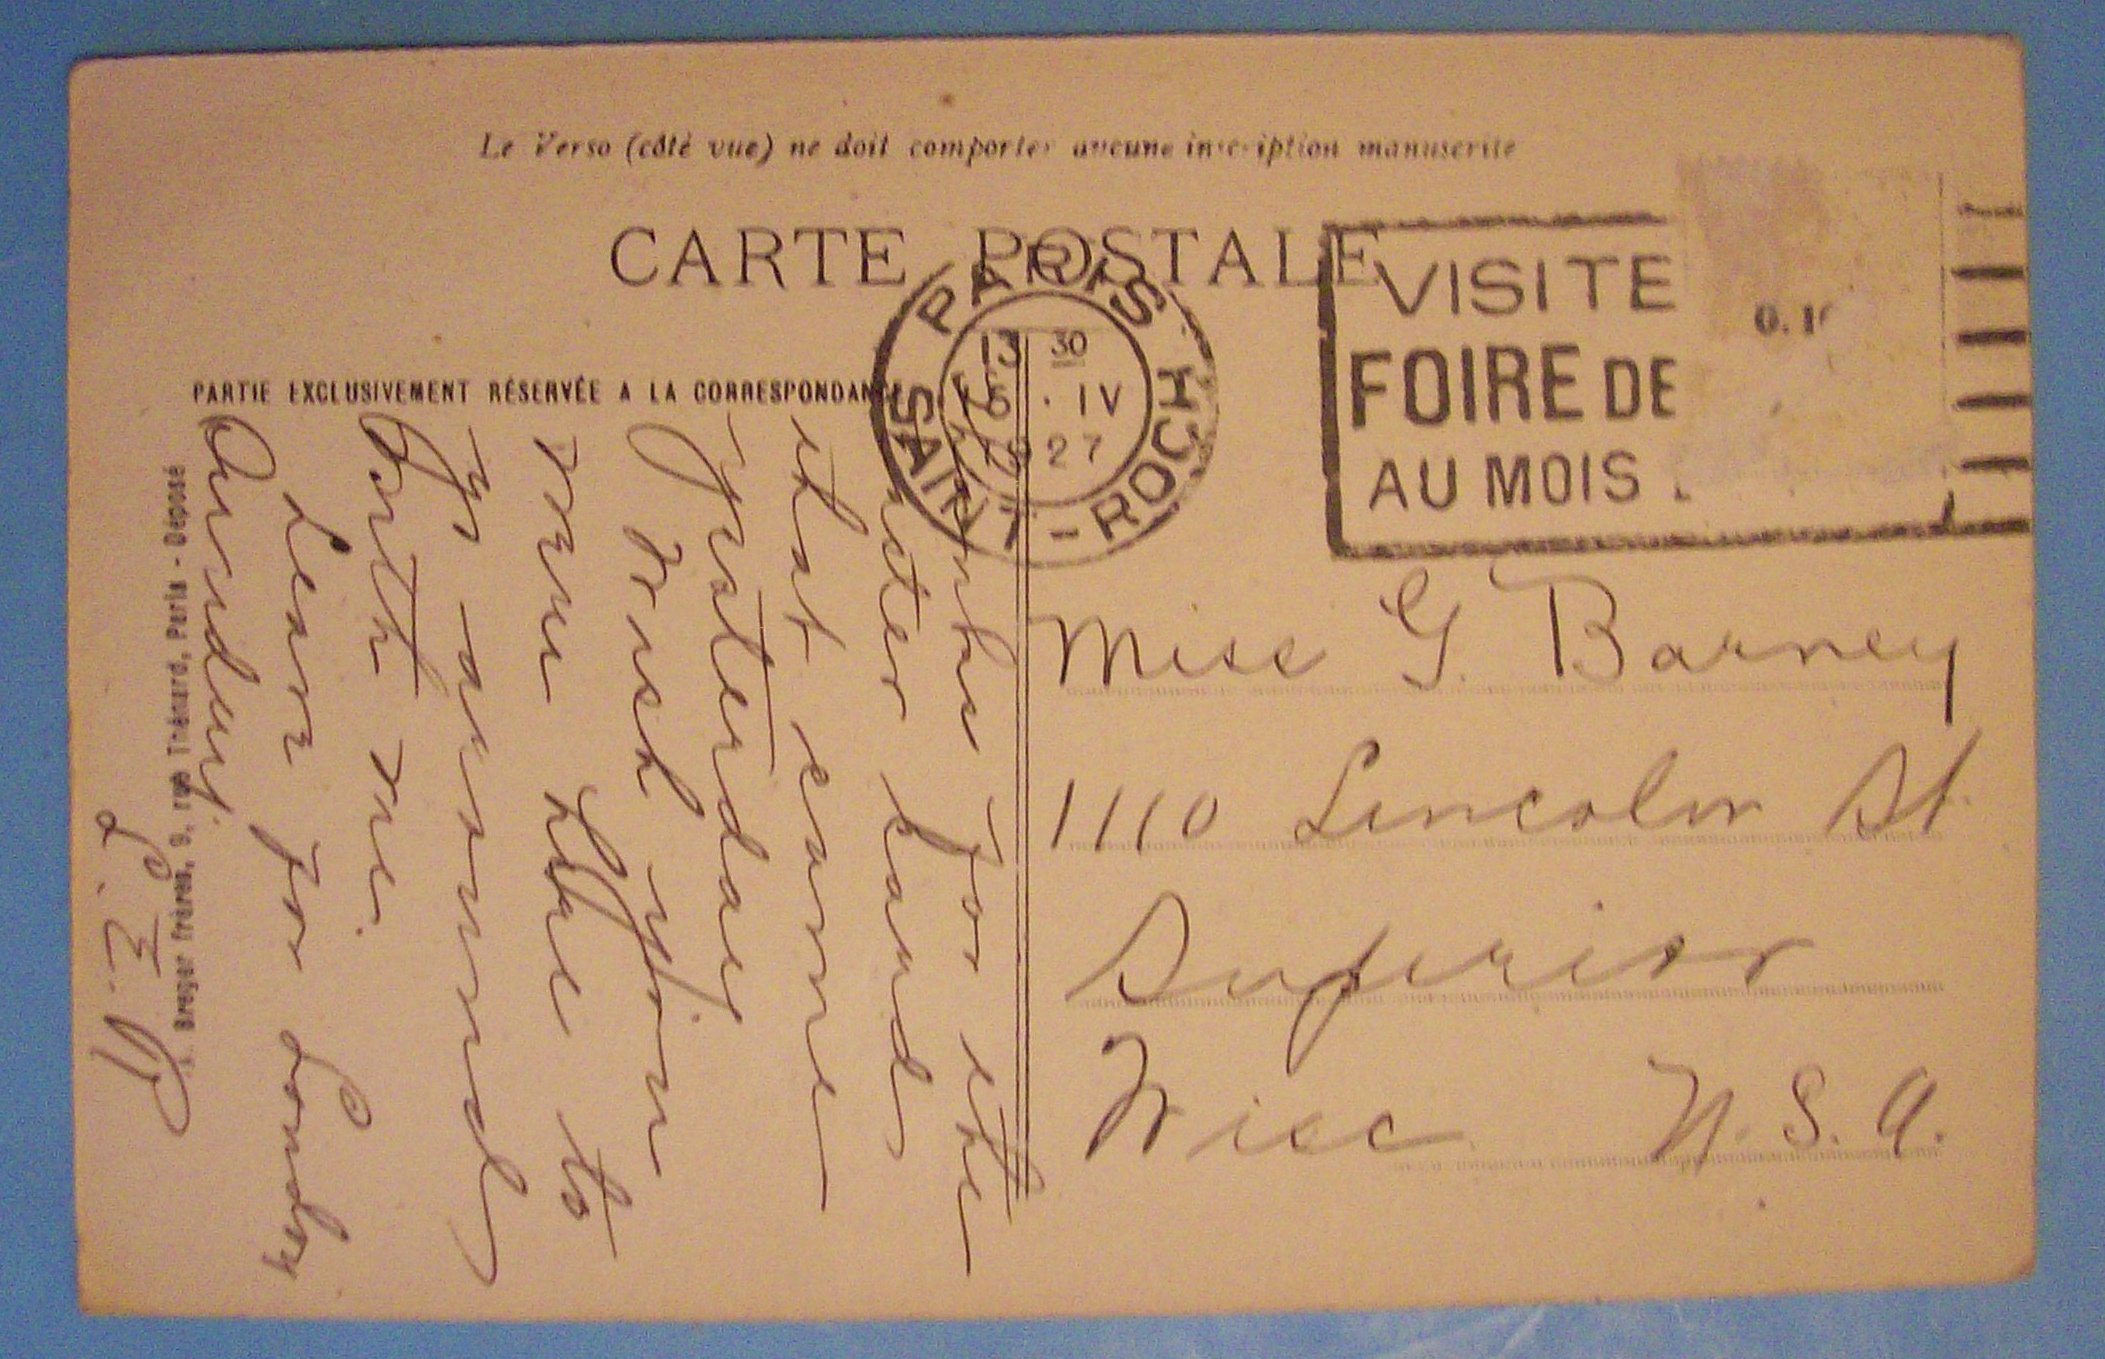 Le Verso (côté vue) ne doit comporter aucune inscription manuscrite
CARTE POSTALE
PARIS
SAINT-ROCH
13 30
IV
27
VISITE
FOIRE DE
AU MOIS
0.1
PARTIE EXCLUSIVEMENT RÉSERVÉE A LA CORRESPONDANCE
Thanks for the
Easter cards
that came
yesterday
Wish you
were here to
go around
with me.
Leave for London
Sunday.
L. E. P.
Breger frères, 9, rue Thénard, Paris - Déposé
Miss G. Barney
1110 Lincoln St.
Superior
Wisc U.S.A.